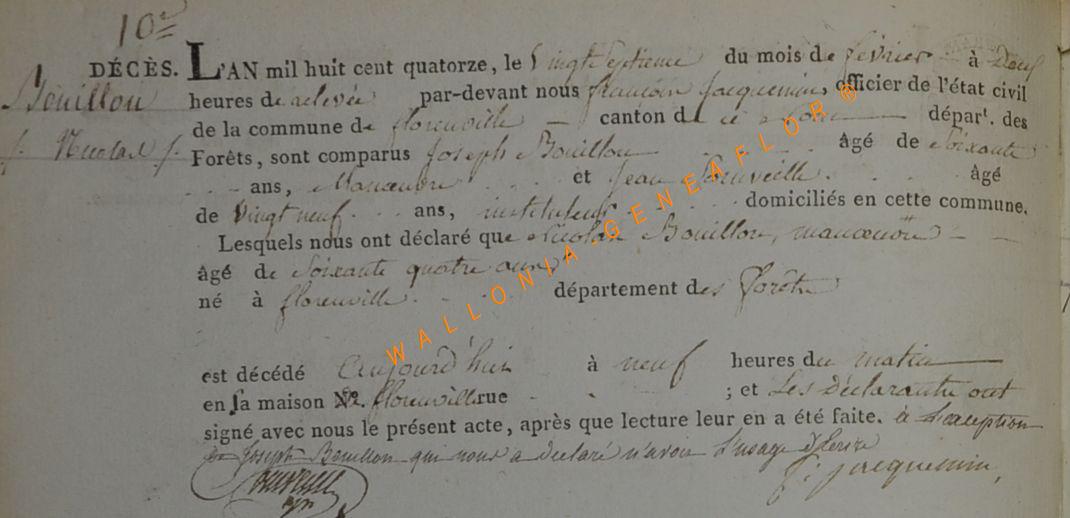 10e
DÉCÈS. L'AN mil huit cent quatorze, le Vingt Septieme du mois de février à Deux
Bouillon
heures de relevée par-devant nous françois Jacquemin, officier de l'état civil
de la commune de florenville canton d ce départ. des
Nicolas
Forêts, sont comparus Joseph Bouillon âgé de Soixante
ans, Manœuvre et Jean âgé
de Vingt neuf ans, instituteur domiciliés en cette commune.
Lesquels nous ont déclaré que Nicolas Bouillon, manœuvre
âgé de Soixante quatre ans,
né à florenville département des forêts
est décédé aujourd'hui à neuf heures du matin
en sa maison No. de florenville rue ; et Les Déclarants ont
signé avec nous le présent acte, après que lecture leur en a été faite. à L'exception
de Joseph Bouillon qui nous a déclaré n'avoir l'usage d'écrire
f: jacquemin,
WALLONIA-GENEAFLOR®